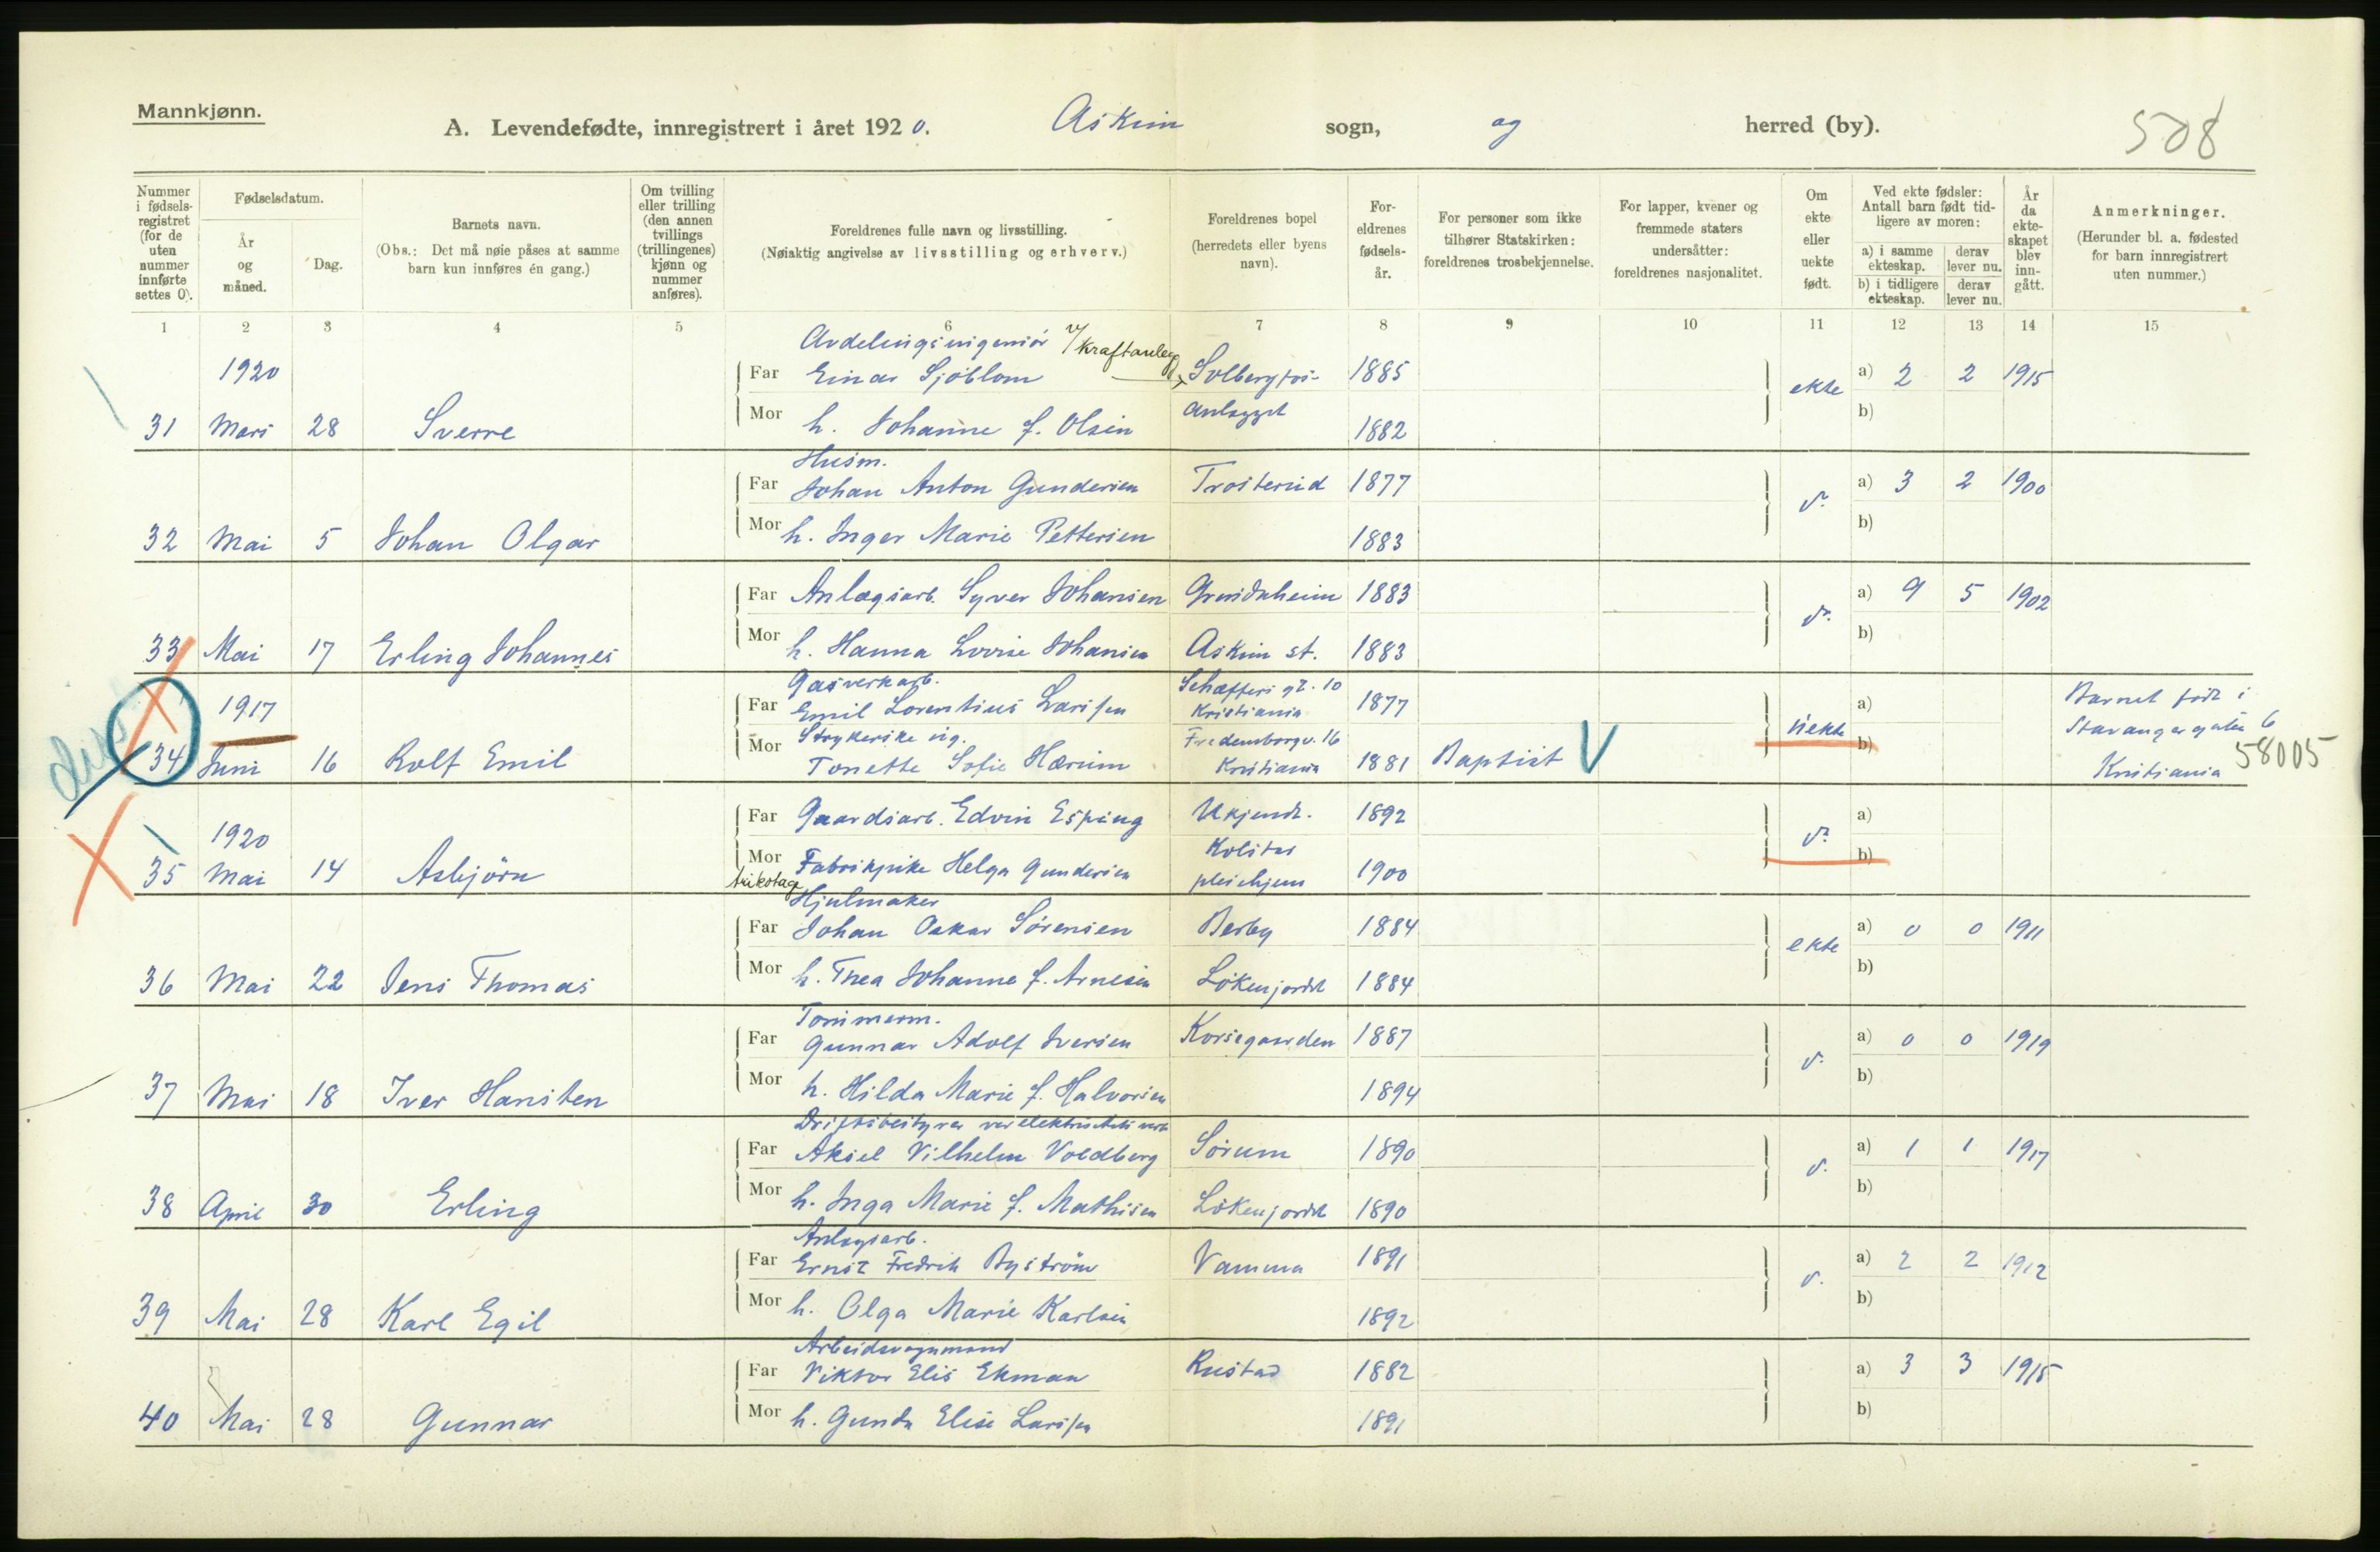 Mannkjønn.
A. Levendefødte, innregistrert i året 1920. Askim sogn, og herred (by). 508
Nummer i fødsels-registret (for de uten nummer innførte settes 0).
Fødselsdatum.
År og måned.
Dag.
Barnets navn.
(Obs.: Det må nøie påses at samme barn kun innføres én gang.)
Om tvilling eller trilling (den annen tvillings (trillingenes) kjønn og nummer anføres).
Foreldrenes fulle navn og livsstilling.
(Nøiaktig angivelse av livsstilling og erhverv.)
Foreldrenes bopel (herredets eller byens navn).
For-eldrenes fødsels-år.
For personer som ikke tilhører Statskirken: foreldrenes trosbekjennelse.
For lapper, kvener og fremmede staters undersåtter: foreldrenes nasjonalitet.
Om ekte eller uekte født.
Ved ekte fødsler: Antall barn født tid-ligere av moren:
a) i samme ekteskap. derav lever nu.
b) i tidligere ekteskap. derav lever nu.
År da ekte-skapet blev inn-gått.
Anmerkninger.
(Herunder bl. a. fødested for barn innregistrert uten nummer.)
1 2 3 4 5 6 7 8 9 10 11 12 13 14 15
Avdelingsingeniör v/ Kraftanlegg
1920 Far Einar Sjöblom Solbergfos- 1885 ekte a) 2 2 1915
31 Mars 28 Sverre Mor h. Johanne f. Olsen anlegget 1882 b)
Husm.
Far Johan Anton Gundersen Trosterud 1877 d. a) 3 2 1900
32 Mai 5 Johan Olgar Mor h. Inger Marie Pettersen 1883 b)
Far Anlægsarb. Syver Johansen 1883 d. a) 9 5 1902
33 Mai 17 Erling Johannes Mor h. Hanna Lovise Johansen Askim st. 1883 b)
Gasverkarb. Schæfferi gt. 10
1917 Far Emil Lorentius Larssen Kristiania 1877 uekte a) Barnet født i
Strykerske ug. Fredensborgv. 16 b) Stavangergaten 6
34 Juni 16 Rolf Emil Mor Tonette Sofie Hærum Kristiania 1881 Baptist V Kristiania 58005
1920 Far Gaardsarb. Edvin Esping Ukjendt. 1892 d. a)
35 Mai 14 Asbjörn Mor Fabrikpike Helga Gundersen 1900 b)
trikotage
Hjulmaker
Far Johan Oskar Sörensen Berby 1884 ekte a) 0 0 1911
36 Mai 22 Jens Thomas Mor h. Thea Johanne f. Arnesen Lökenjordet 1884 b)
Tömmerm.
Far Gunnar Adolf Iversen Korsegaarden 1887 d. a) 0 0 1919
37 Mai 18 Iver Hansten Mor h. Hilda Marie f. Halvorsen 1894 b)
Driftsbestyrer ved elektrisitetsverk
Far Aksel Vilhelm Voldberg Sörum 1890 d. a) 1 1 1917
38 April 30 Erling Mor h. Inga Marie f. Mathisen Lökenjordet 1890 b)
Anlægsarb.
Far Ernst Fredrik Byström Vamma 1891 d. a) 2 2 1912
39 Mai 28 Karl Egil Mor h. Olga Marie Karlsen 1892 b)
Far Viktor Elis Ekman Rustad 1882 a) 3 3 1915
40 Mai 28 Gunnar Mor h. Gunda Elise Larssen 1891 b)